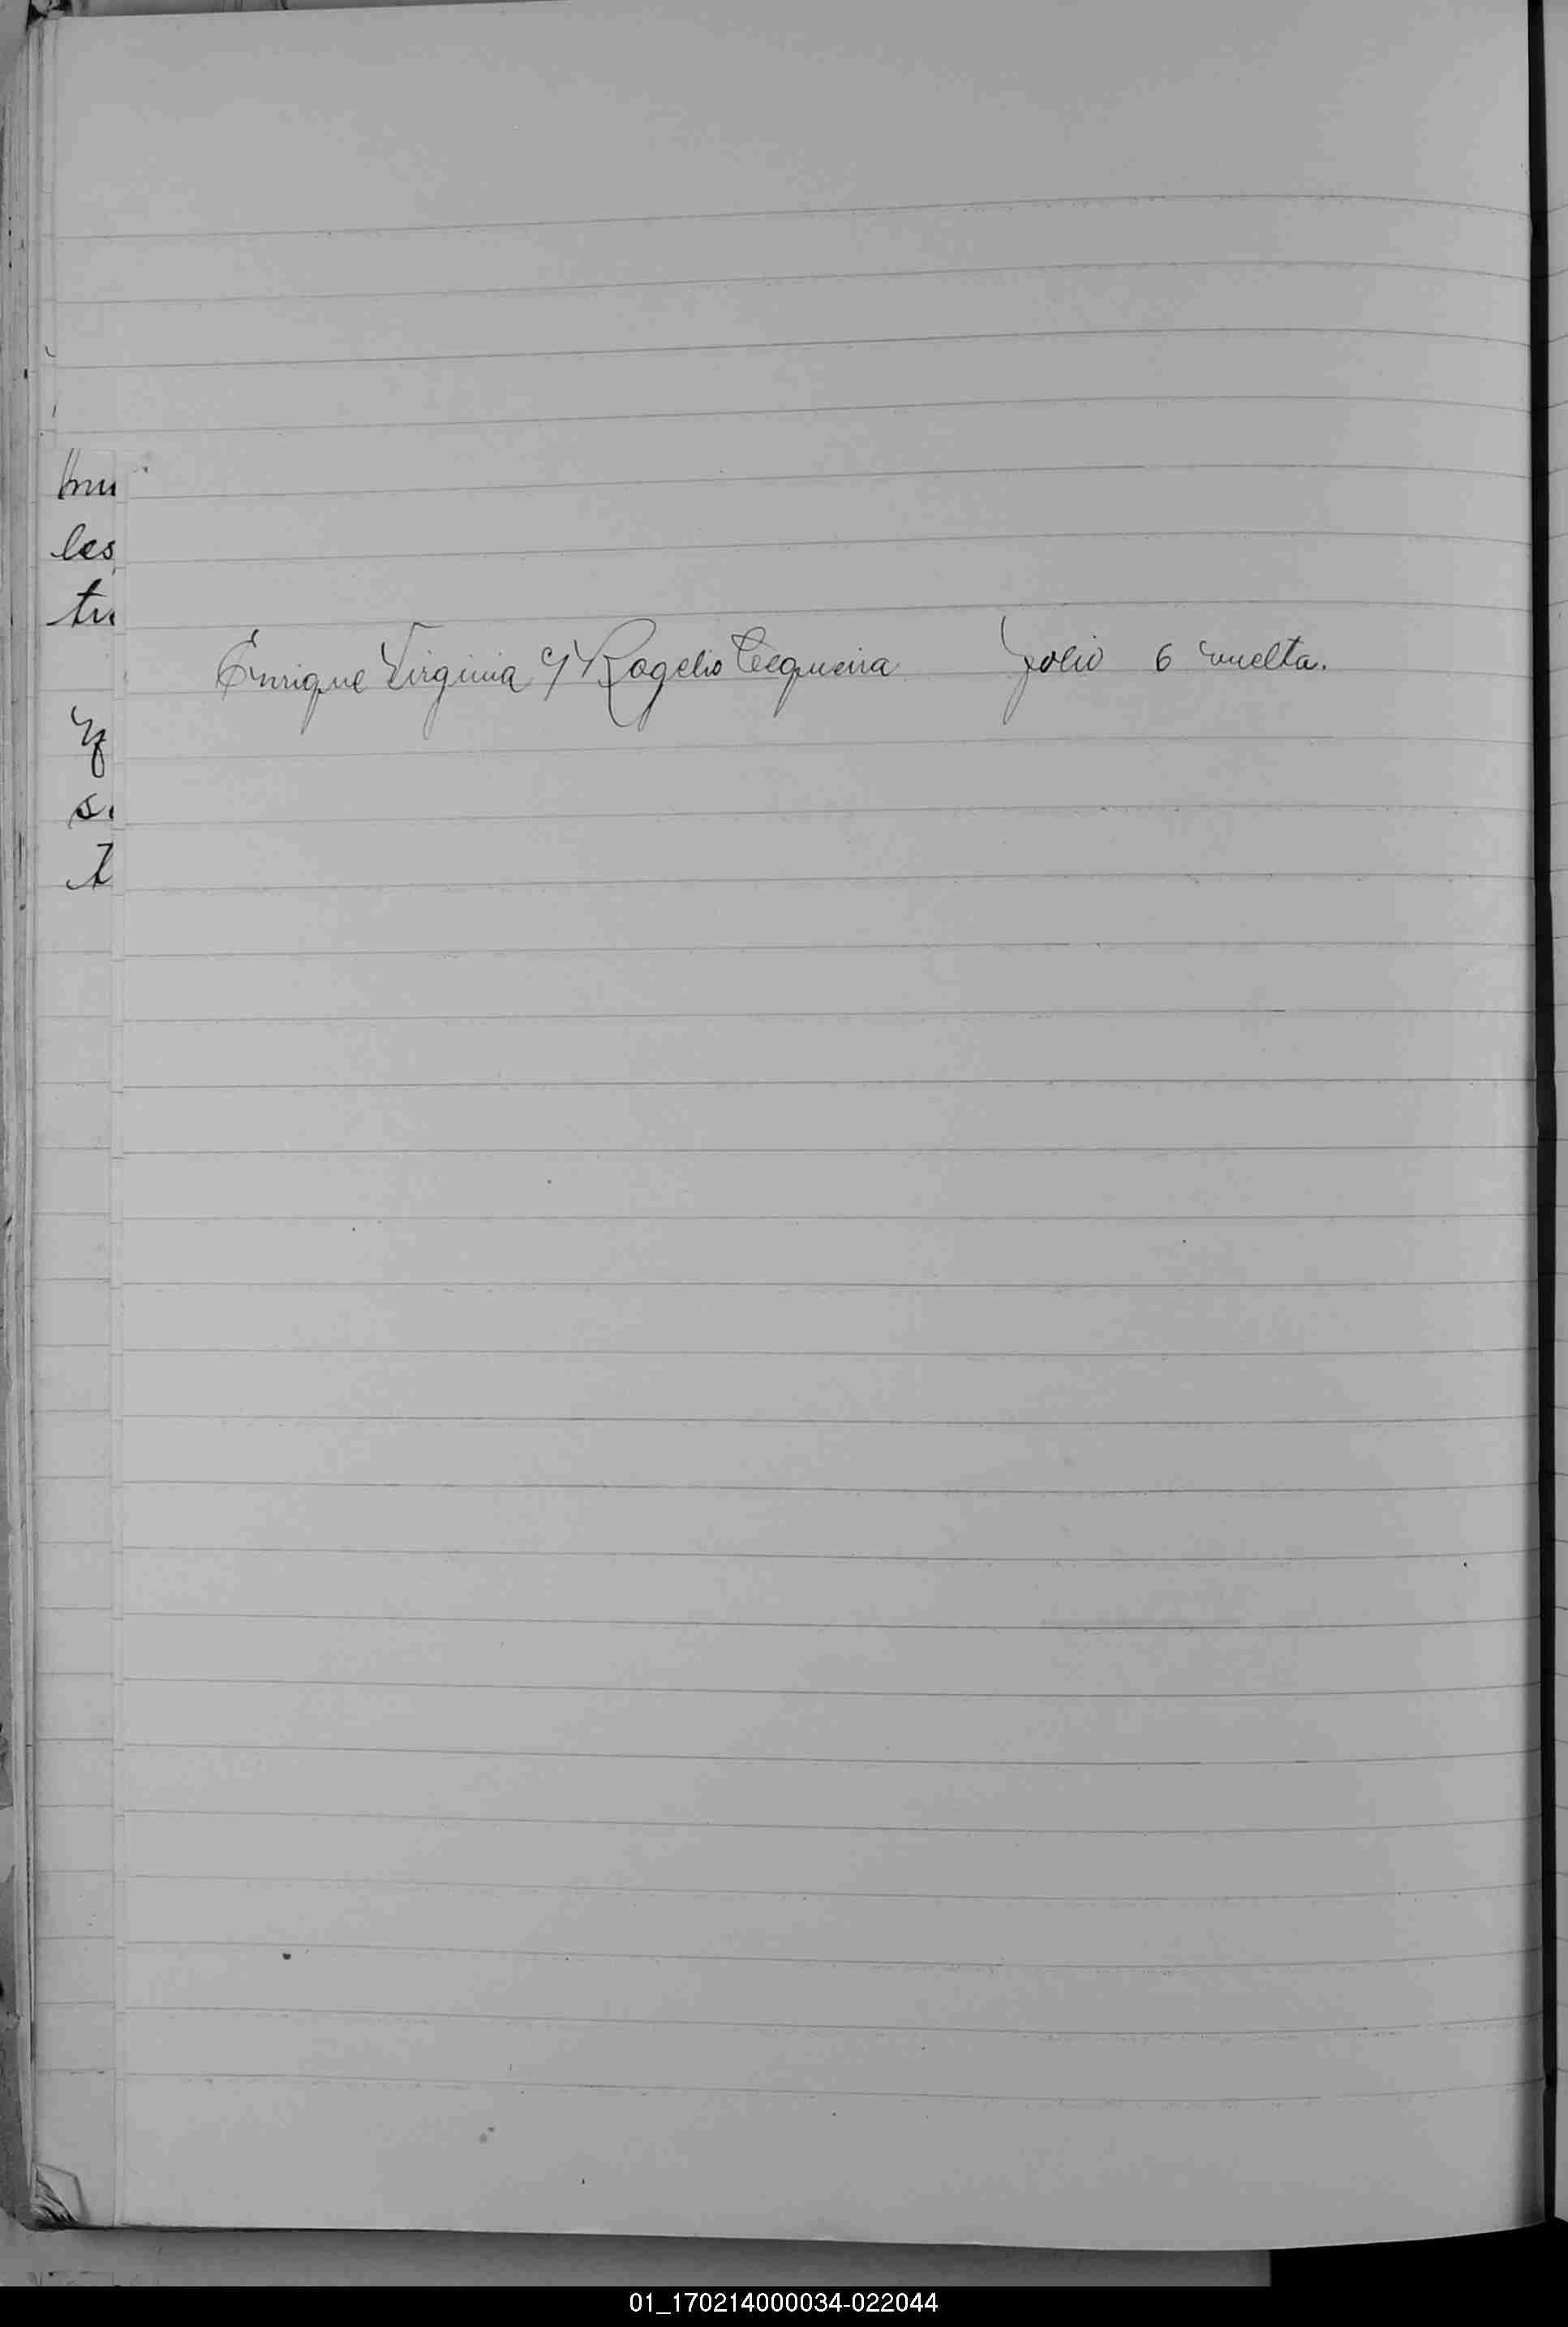 Enrique Virginia y Rogelio Cerqueira folio 6 vuelta.
les
01_170214000034-022044